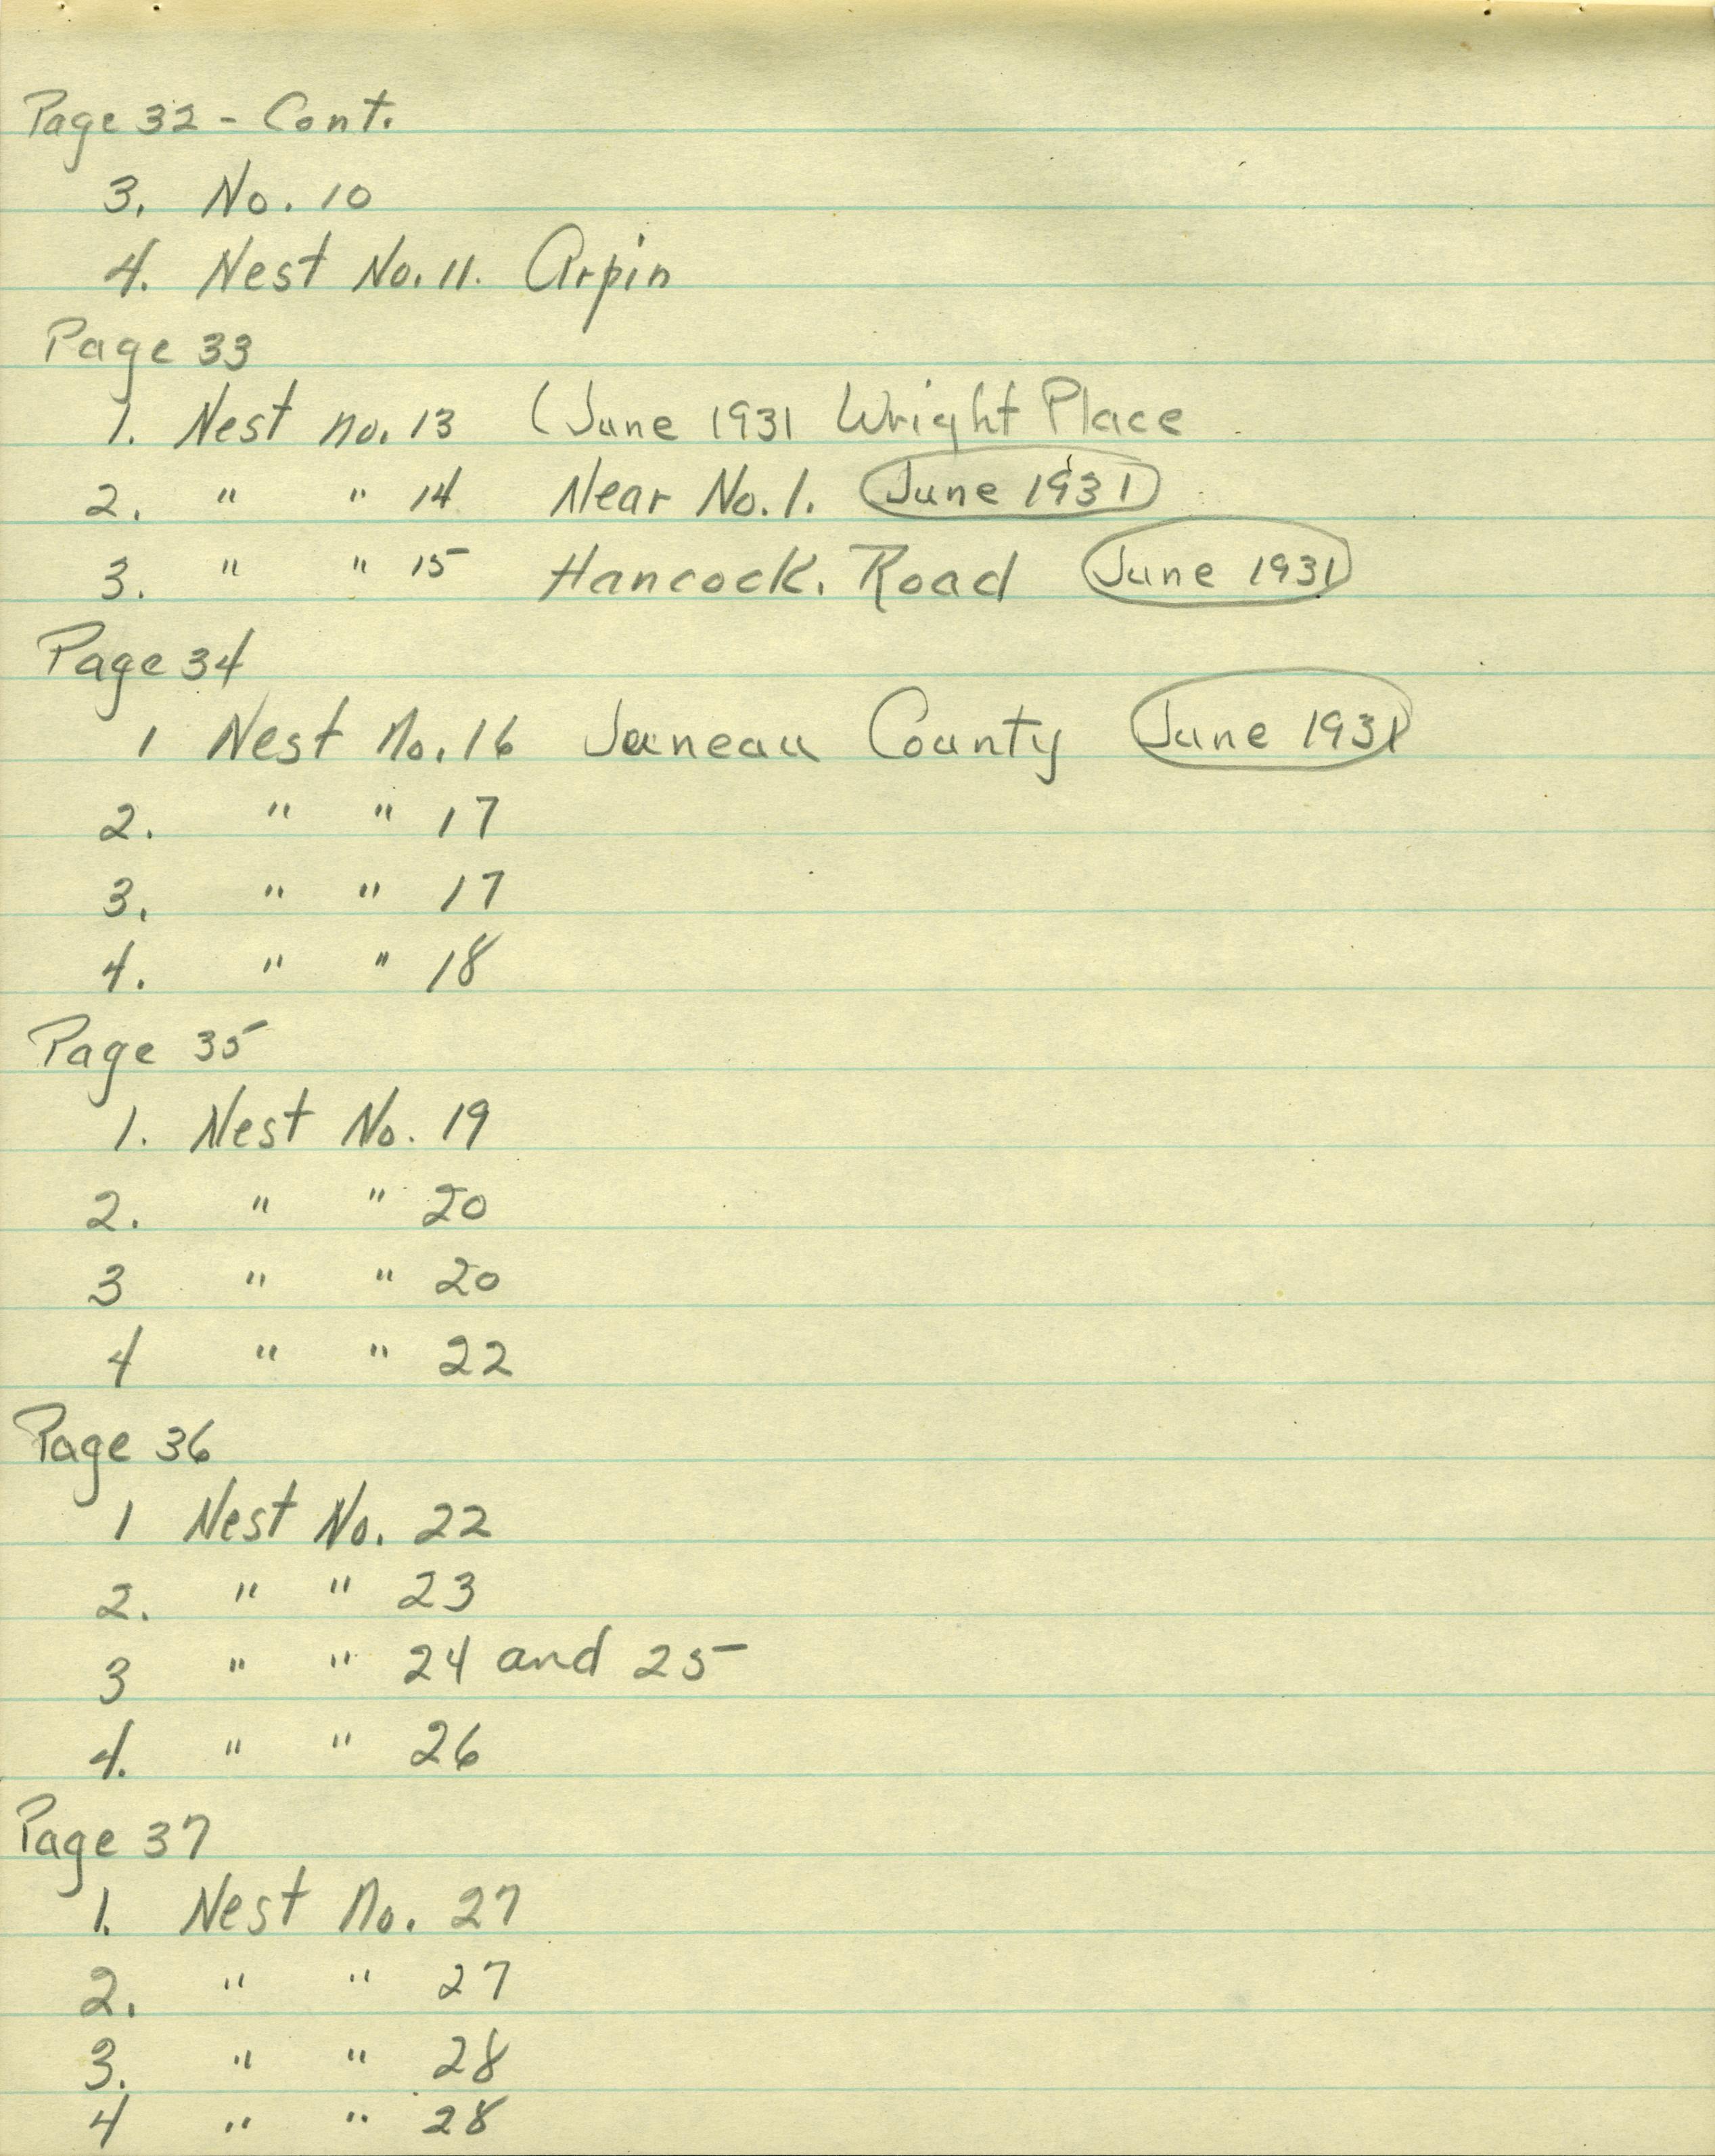 Page 32 - Cont.
3. No. 10
4. Nest No. 11. Arpin
Page 33
1. Nest no. 13 (June 1931 Wright Place
2. " " 14 Near No. 1. June 1931
3. " " 15 Hancock. Road June 1931
Page 34
1 Nest No. 16 Juneau County June 1931
2. " " 17
3. " " 17
4. " " 18
Page 35
1. Nest No. 19
2. " " 20
3 " " 20
4 " " 22
Page 36
1 Nest No. 22
2. " " 23
3 " " 24 and 25
4. " " 26
Page 37
1. Nest No. 27
2. " " 27
3. " " 28
4 " " 28